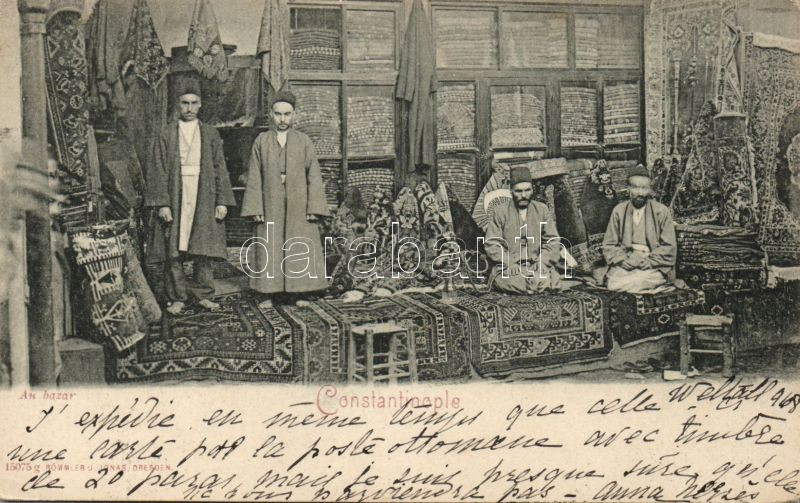 darabanth
Au bazar
Constantinople
J'expédie en même temps que celle
une carte par la poste ottomane avec timbre
15075 g RÖMMLER & JONAS, DRESDEN.
de 20 paras, mais je suis presque sûre qu'elle
ne vous parviendra pas - Anna